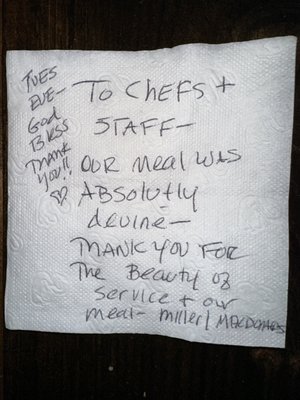 TUES
EVE-
God
BLESS
THANK
YOU!!
♡
TO CHEFS +
STAFF-
OUR Meal WAS
ABSOLUTLY
devine-
THANK YOU FOR
The Beauty of
Service + our
meal- miller/